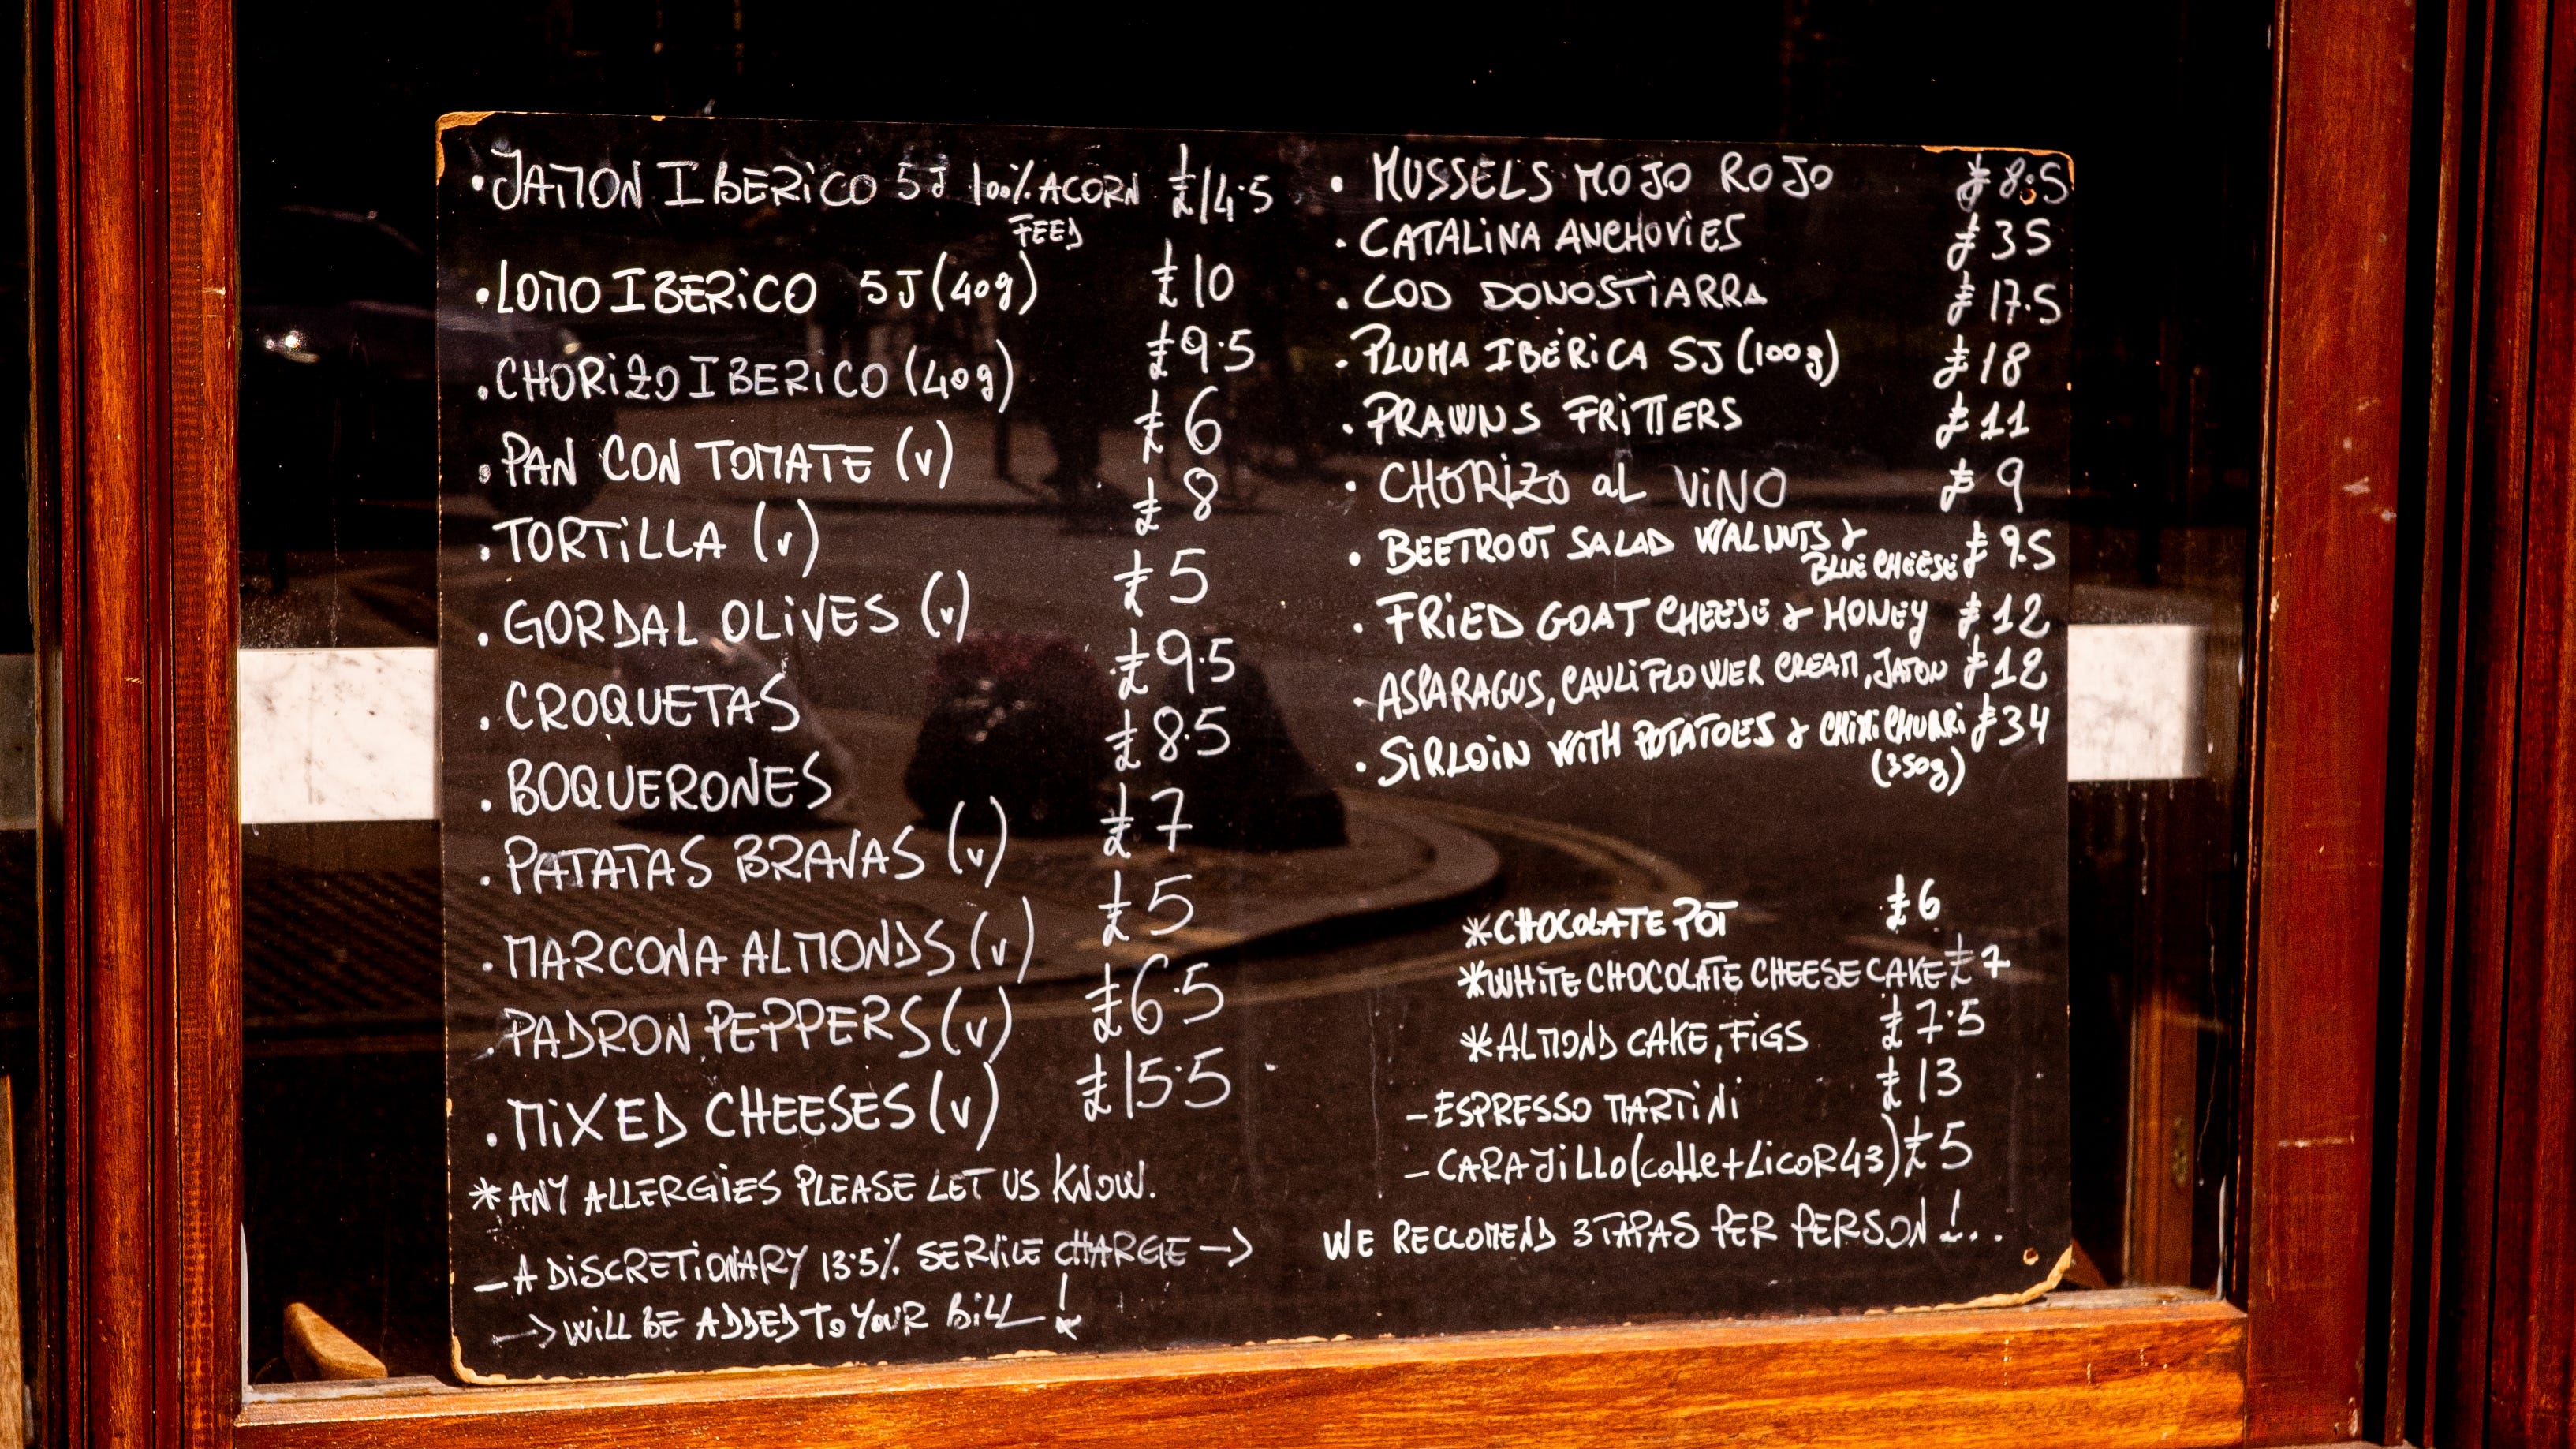 • JAMON IBERICO 5J 100% ACORN £14.5
FEED
• LOMO IBERICO 5J (40g) £10
• CHORIZO IBERICO (40g) £9.5
• PAN CON TOMATE (v) £6
• TORTILLA (v) £8
• GORDAL OLIVES (v) £5
• CROQUETAS £9.5
• BOQUERONES £8.5
• PATATAS BRAVAS (v) £7
• MARCONA ALMONDS (v) £5
• PADRON PEPPERS (v) £6.5
• MIXED CHEESES (v) £15.5
* ANY ALLERGIES PLEASE LET US KNOW.
- A DISCRETIONARY 13.5% SERVICE CHARGE →
→ WILL BE ADDED TO YOUR BILL !
• MUSSELS MOJO ROJO £8.5
• CATALINA ANCHOVIES £35
• COD DONOSTIARRA £17.5
• PLUMA IBÉRICA 5J (100g) £18
• PRAWNS FRITTERS £11
• CHORIZO AL VINO £9
• BEETROOT SALAD WALNUTS &
BLUE CHEESE £9.5
• FRIED GOAT CHEESE & HONEY £12
• ASPARAGUS, CAULIFLOWER CREAM, JAMON £12
• SIRLOIN WITH POTATOES & CHIMICHURRI £34
(350g)
* CHOCOLATE POT £6
* WHITE CHOCOLATE CHEESE CAKE £7
* ALMOND CAKE, FIGS £7.5
- ESPRESSO MARTINI £13
- CARAJILLO (coffe + LICOR 43) £5
WE RECCOMEND 3 TAPAS PER PERSON !...